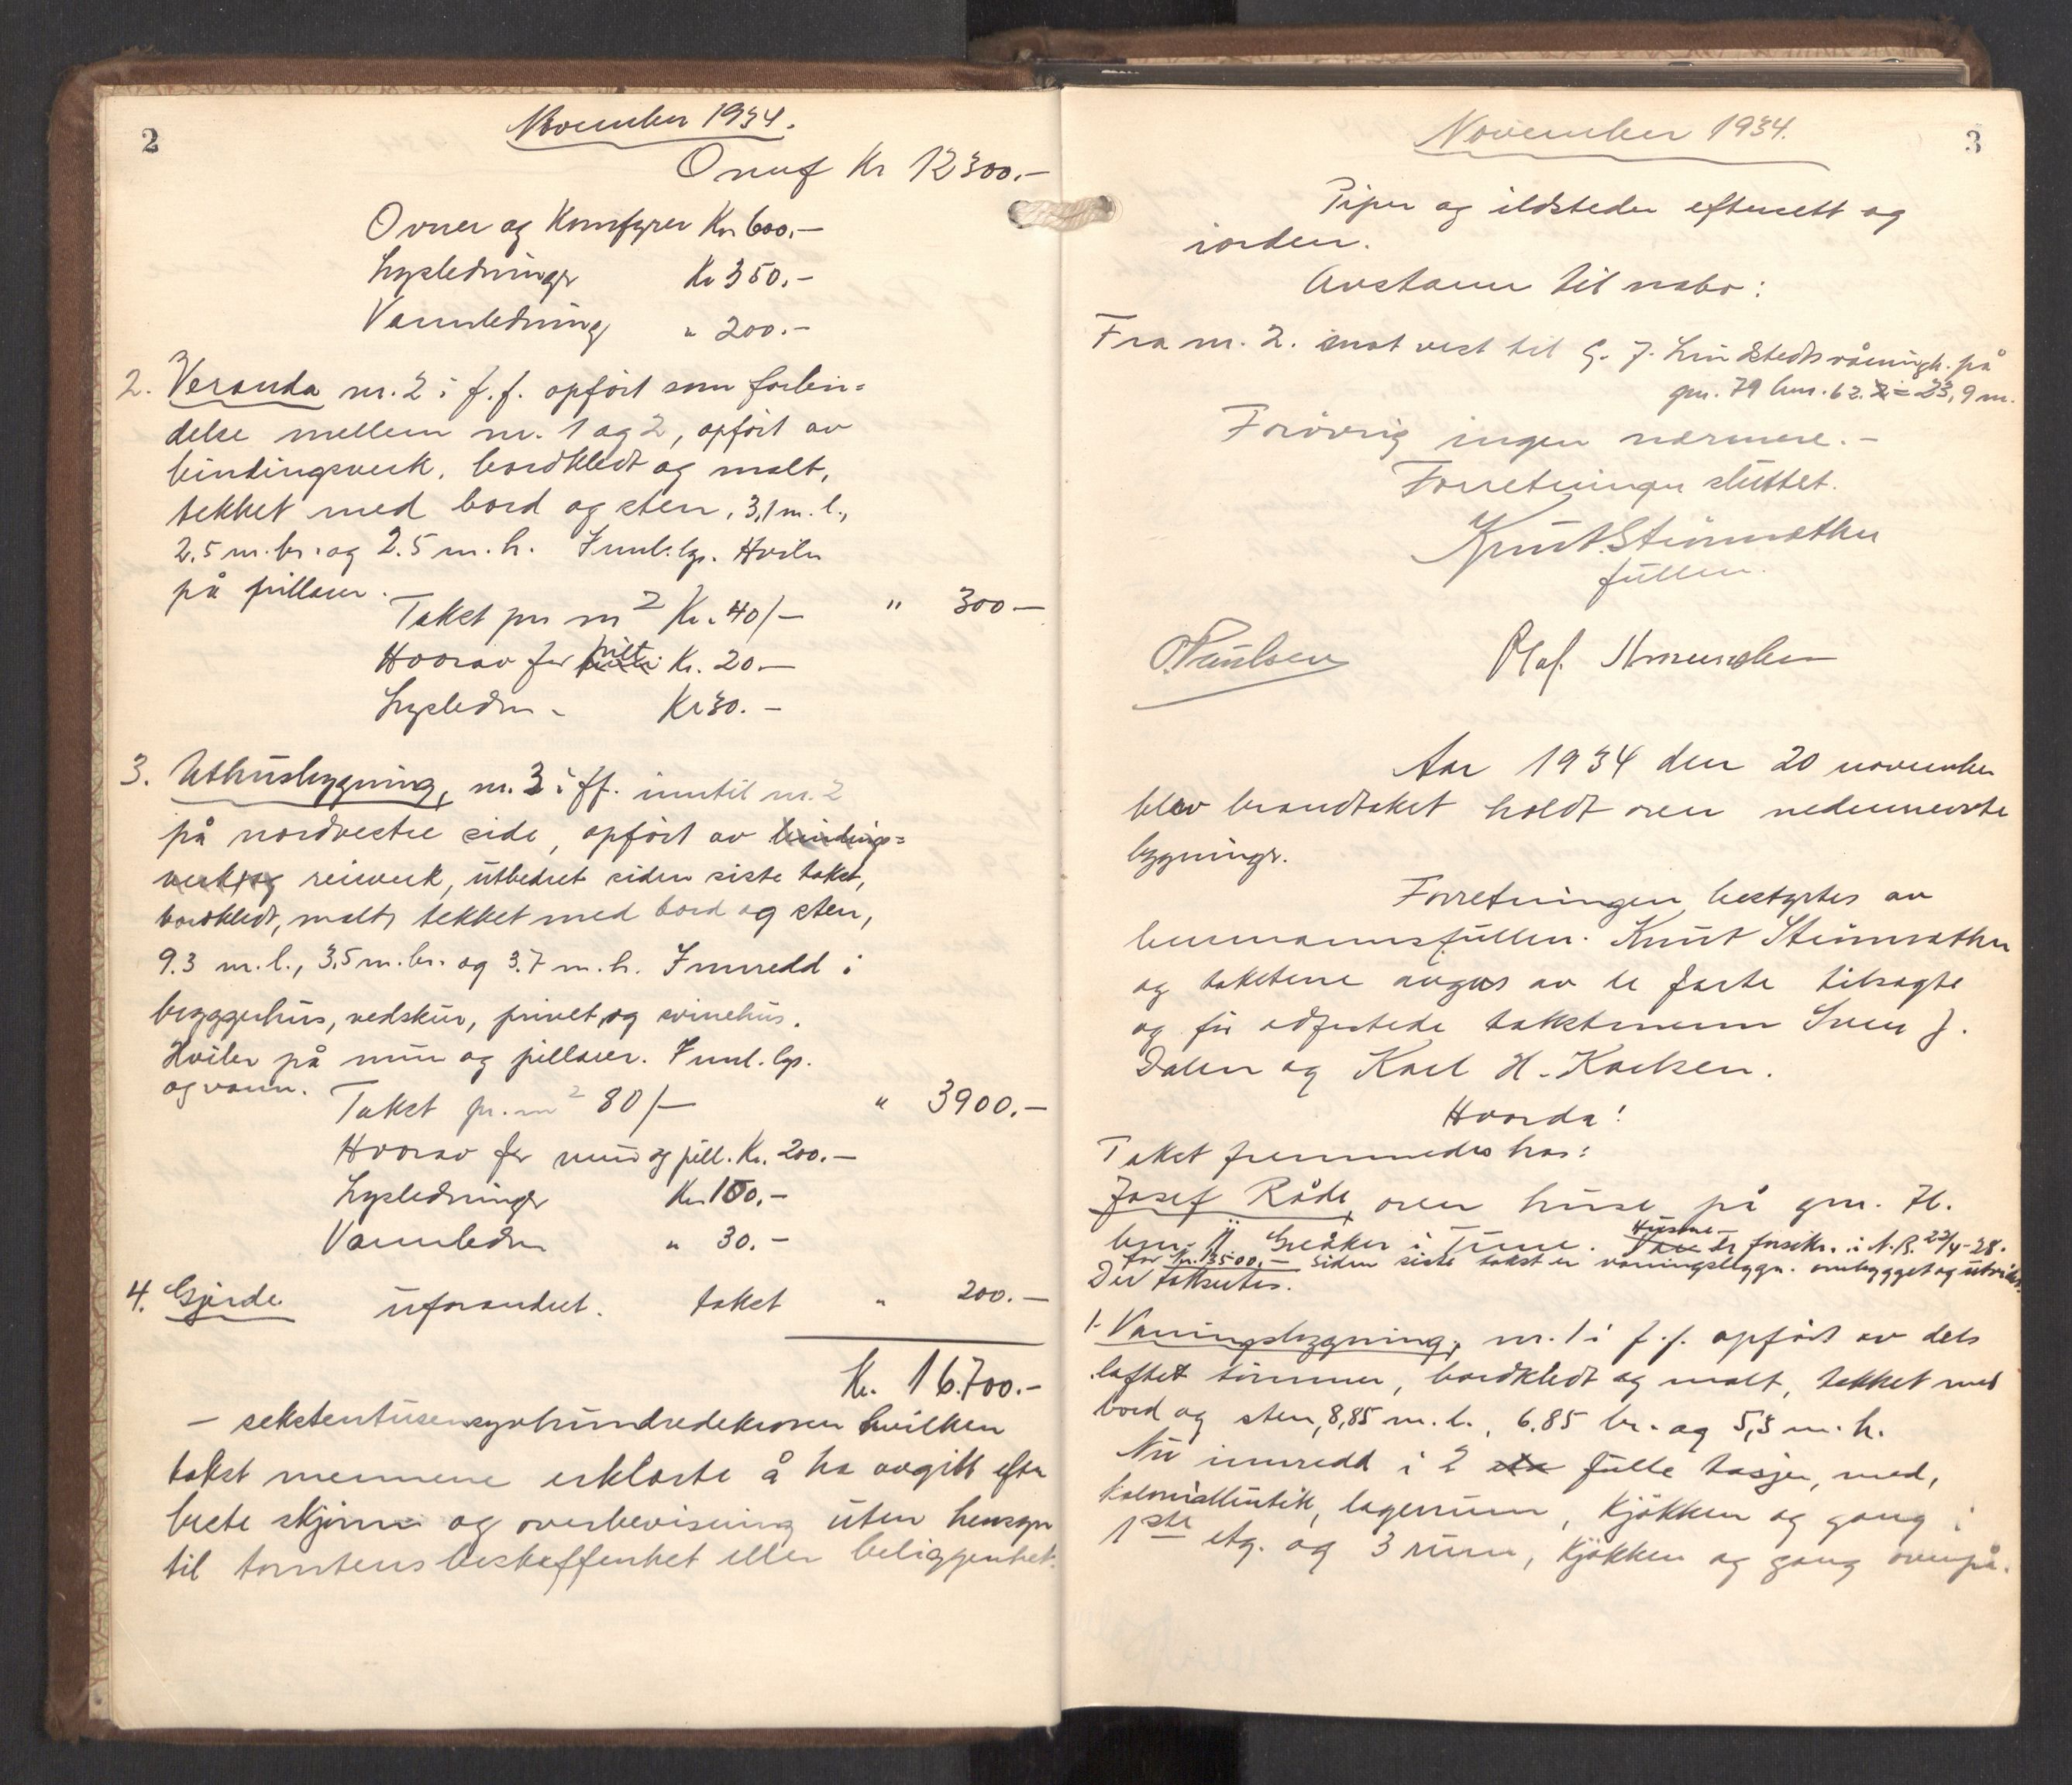 2
November 1934.
Overf Kr 12300.-
Ovner og Komfyrer Kr. 600.-
Lysledninger Kr 350.-
Vannledning " 200.-
2. Veranda nr. 2 i f.f. opført som forbin=
delse mellem nr. 1 og 2, opført av
bindingsverk, bordkledt og malt,
tekket med bord og sten, 3,1 m. l.,
2,5 m. br. og 2.5 m. h. Innl. lys. Hviler
på pillarer.
Takst pr m2 Kr. 40/- " 300 -
Hvorav for pill. Kr. 20.-
Lysledn - Kr 30.-
3. Uthusbygning, nr. 3 i ff. inntil nr. 2
på nordvestre side, opført av bindings=
verk og reisverk, utbedret siden siste takst,
bordkledt, malt, tekket med bord og sten,
9.3 m. l., 3,5 m. br. og 3.7 m. h. Innredd i
bryggerhus, vedskur, privet, og svinehus.
Hviler på mur og pillarer. Innl. lys.
og vann.
Takst pr. m2 80/- " 3900.-
Hvorav for mur og pill. Kr. 200.-
Lysledninger Kr. 100.-
Vannledn " 30.-
4. Gjerde uforandret. takst " 200.-
Kr. 16700.-
- sekstentusensyvhundredekroner hvilken
takst mennene erklærte å ha avgitt efter
beste skjønn og overbevisning uten hensyn
til tomtens beskaffenhet eller beliggenhet.
November 1934.
3
Piper og ildsteder eftersett og
iorden.
Avstann til nabo:
Fra nr. 2. mot vest til G. J. Lindstedts våningh. på
gnr. 79 bnr. 62. = 23,9 m.
Forøvrig ingen nærmere. -
Forretningen sluttet.
Knut Steinnæther
fullm.
O. Paulsen Olaf Amundsen
Aar 1934 den 20 november
blev brandtakst holdt over nedennevnte
bygninger.
Forretningen bestyrtes av
lensmannsfullm. Knut Steinnæther
og takstene avgis av de faste tilsagte
og før edfestede takstmenn Sven J.
Dalen og Karl H. Karlsen.
Hvorda!
Takst fremmedes hos:
Josef Råde, over huse på gnr. 76.
bnr. 11 Greåker i Tune. Husene er forsikr. i N.B. 22/4-28.
for kr. 13500.- Siden siste takst er våningsbygn. ombygget og utvidet.
Der takseres.
1. Våningsbygning, nr. 1 i f.f. opført av dels
laftet tømmer, bordkledt og malt, tekket med
bord og sten, 8,85 m. l., 6.85 br. og 5,3 m. h.
Nu innredd i 2 fulle etasjer, med,
kolonialbutik, lagerrum, kjøkken og gang i
1ste etg. og 3 rum, kjøkken og gang ovenpå.